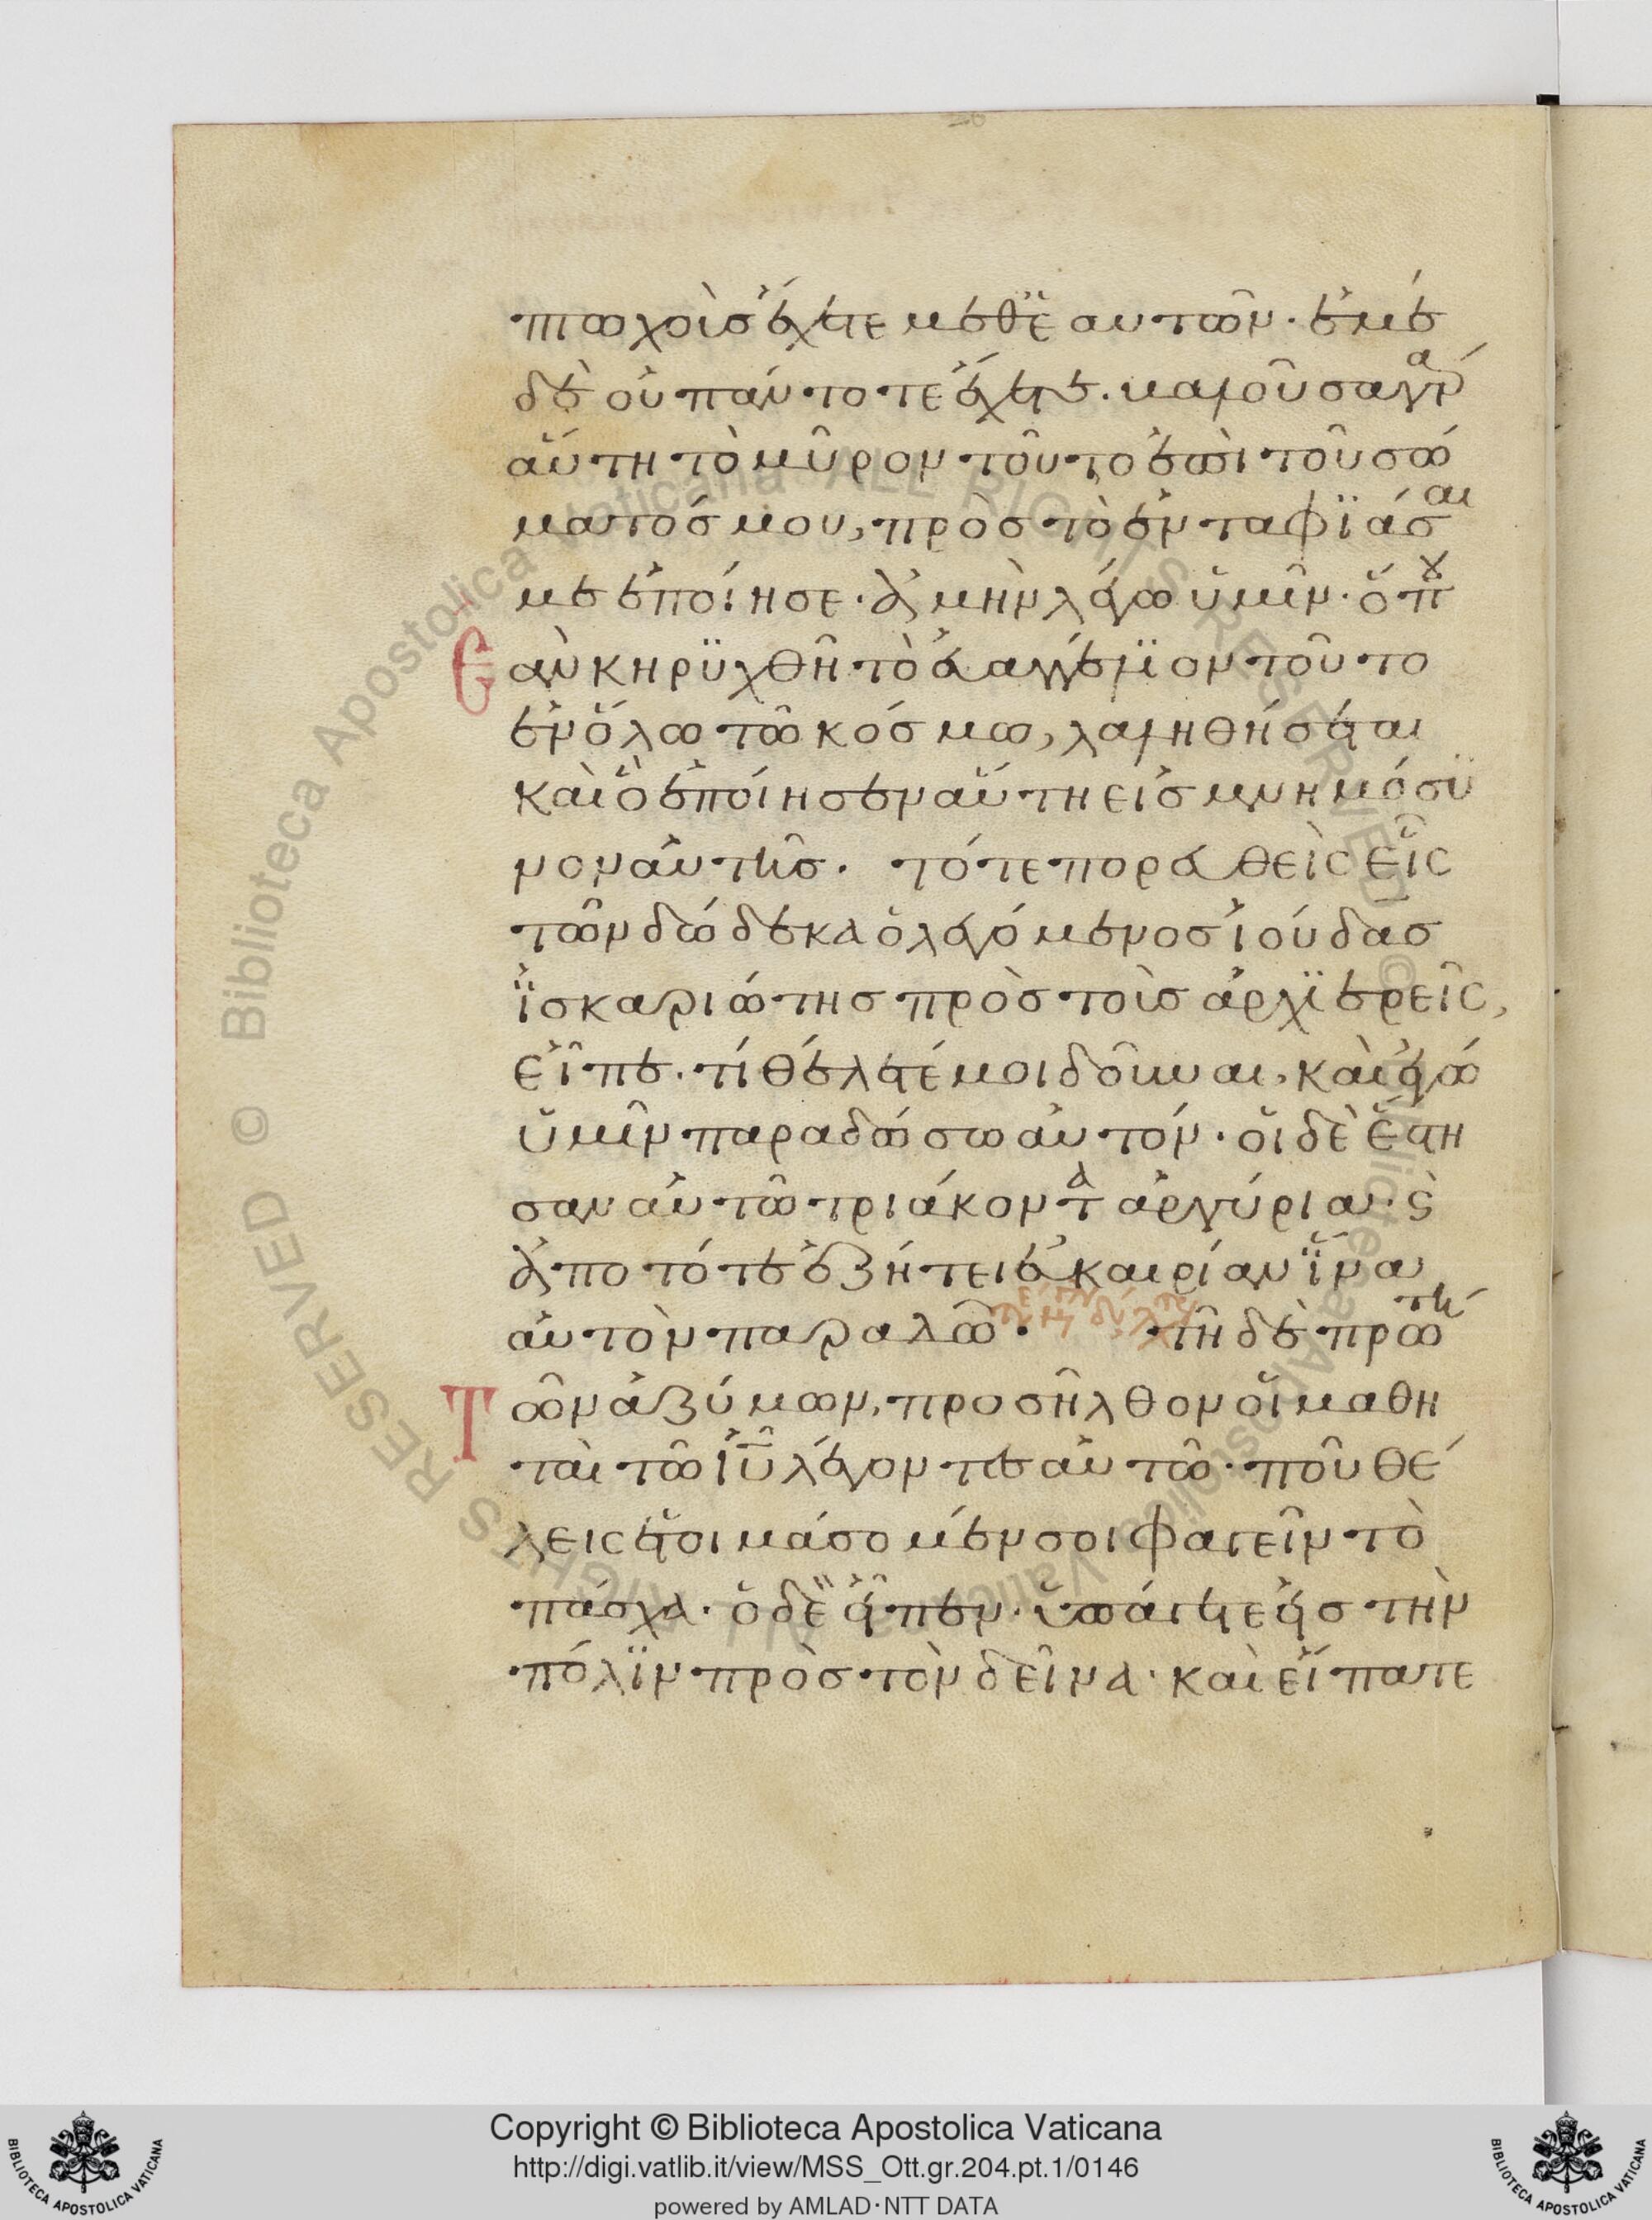 πτωχοὺς ἔχετε μεθ ἑαυτῶν· ἐμὲ
δὲ οὐ πάντοτε ἔχετε. βαλοῦσα γὰρ
αὕτη τὸ μῦρον τοῦτο ἐπὶ τοῦ σώ
ματός μου, πρὸς τὸ ἐνταφϊάσαι
με ἐποίησε· ἀμὴν λέγω ὑμῖν· ὅπου
ἐὰν κηρϋχθῆ τὸ εὐαγγέλϊον τοῦτο
ἐν ὅλω τῶ κόσμω, λαληθήσεται
καὶ ὃ ἐποίησεν αὕτη εἰς μνημόσϋ
νον αὐτῆς. τότε πορευθεὶς εἷς
τῶν δώδεκα ὁ λεγόμενος ἰούδας
ἰσκαριώτης πρὸς τοὺς ἀρχϊερεῖς,
εἶπε. τί θέλετέ μοι δοῦναι, καὶ ἐγώ
ὑμῖν παραδώσω αὐτόν· οἱ δὲ ἔστη
σαν αὐτῶ τριάκοντα ἀργύρια· ϛ
ἀπο τότε ἐζήτει εὐκαιρίαν ἵνα
αὐτὸν παραδῶ· τῆ δὲ πρώτη
Τῶν ἀζύμων, προσῆλθον οἱ μαθη
ταὶ τῶ ἰῦ λέγοντες αὐτῶ· ποῦ θέ
λεις ἑτοιμάσομέν σοι φαγεῖν τὸ
πάσχα· ὁ δὲ εἶπεν· ὑπάγετε εἰς τὴν
πόλϊν πρὸς τὸν δεῖνα· καὶ εἴπατε
Biblioteca Apostolica Vaticana ALL RIGHTS RESERVED ©
Copyright © Biblioteca Apostolica Vaticana
http://digi.vatlib.it/view/MSS_Ott.gr.204.pt.1/0146
powered by AMLAD·NTT DATA
BIBLIOTECA APOSTOLICA VATICANA
BIBLIOTECA APOSTOLICA VATICANA